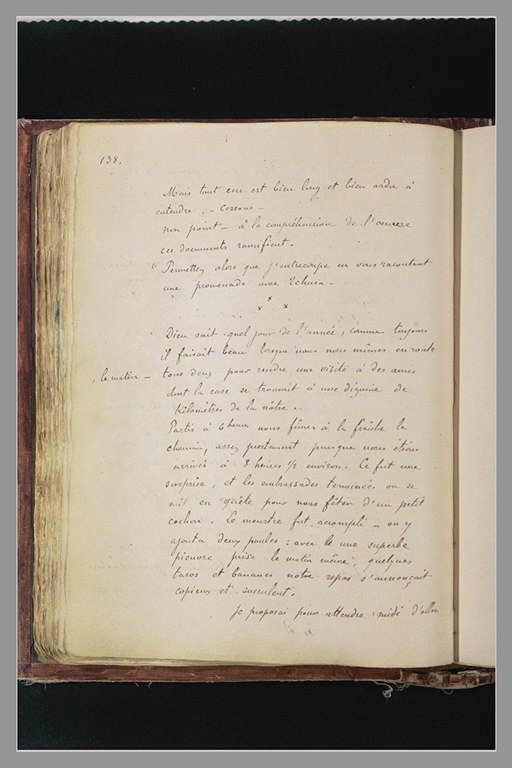 138.
Mais tout ceci est bien long et bien ardu à
entendre. - Cessons -
un point - à la compréhension de l'oeuvre
ces documents
Permettez alors que j'entrecoupe en vous racontant
une promenade avec Tehura.
x x x
Dieu sait quel jour de l'année, comme toujours
il faisait beau lorsque nous nous mîmes en route
, le matin - tous deux pour rendre une visite à des amis
dont la case se trouvait à une dizaine de
kilomètres de la nôtre.
Partis à 6 heures nous fîmes à la fraîche le
chemin, assez prestement puisque nous étions
arrivés à 8 heures 1/2 environ. Ce fut une
surprise, et les embrassades terminées on se
mit en quête pour nous fêter d'un petit
cochon. Le meurtre fut accompli - on y
ajouta deux poules : avec une superbe
pieuvre prise le matin même, quelques
taros et bananes notre repas s'annonçait
copieux et succulent.
Je proposai pour attendre midi d'aller